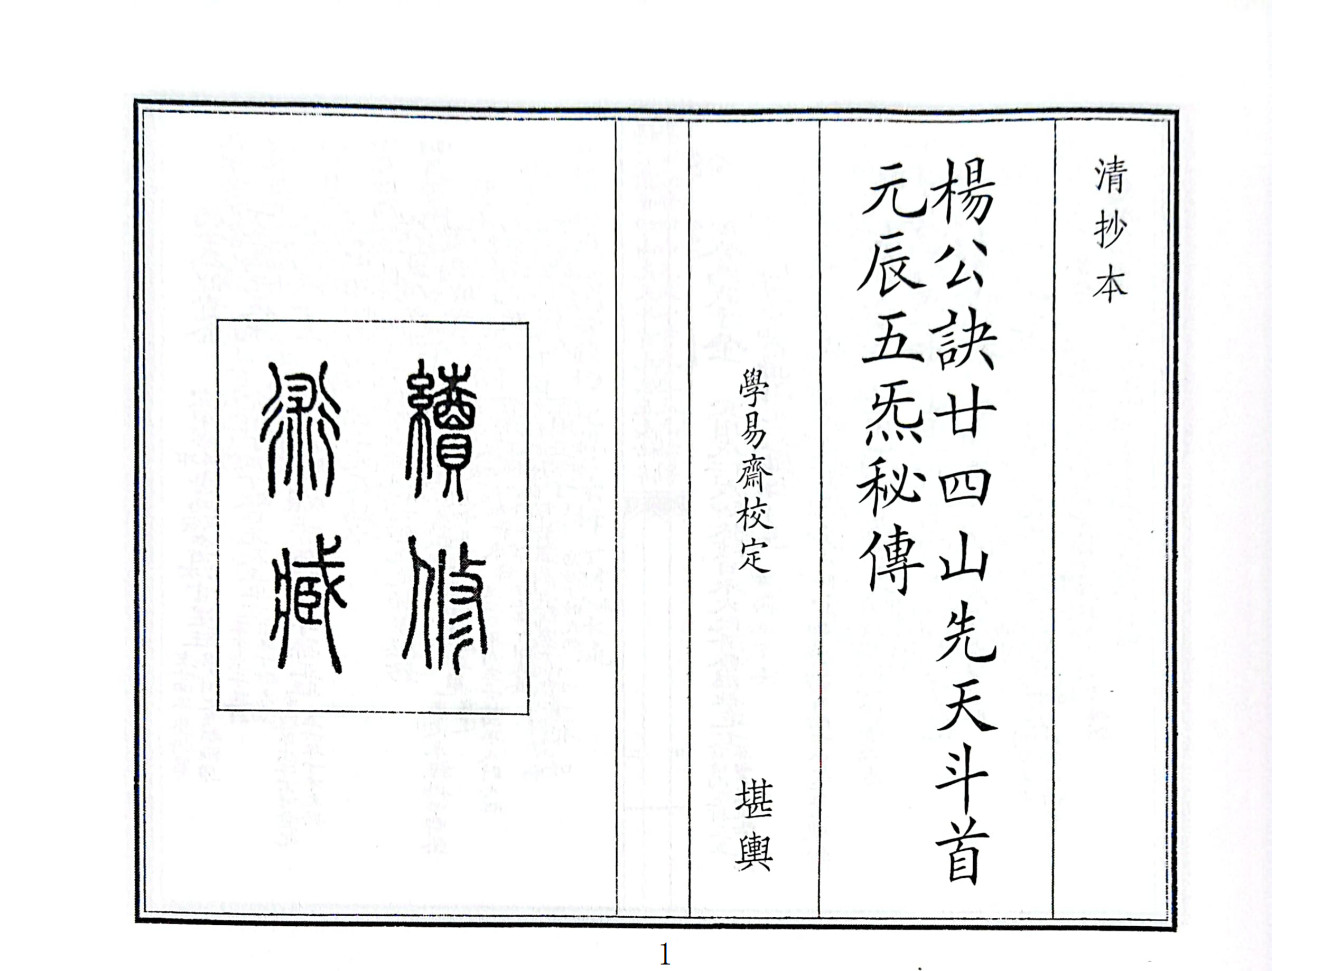 清抄本
楊公訣廿四山先天斗首
元辰五炁秘傳
學易齋校定 堪輿
續修
術臧
1